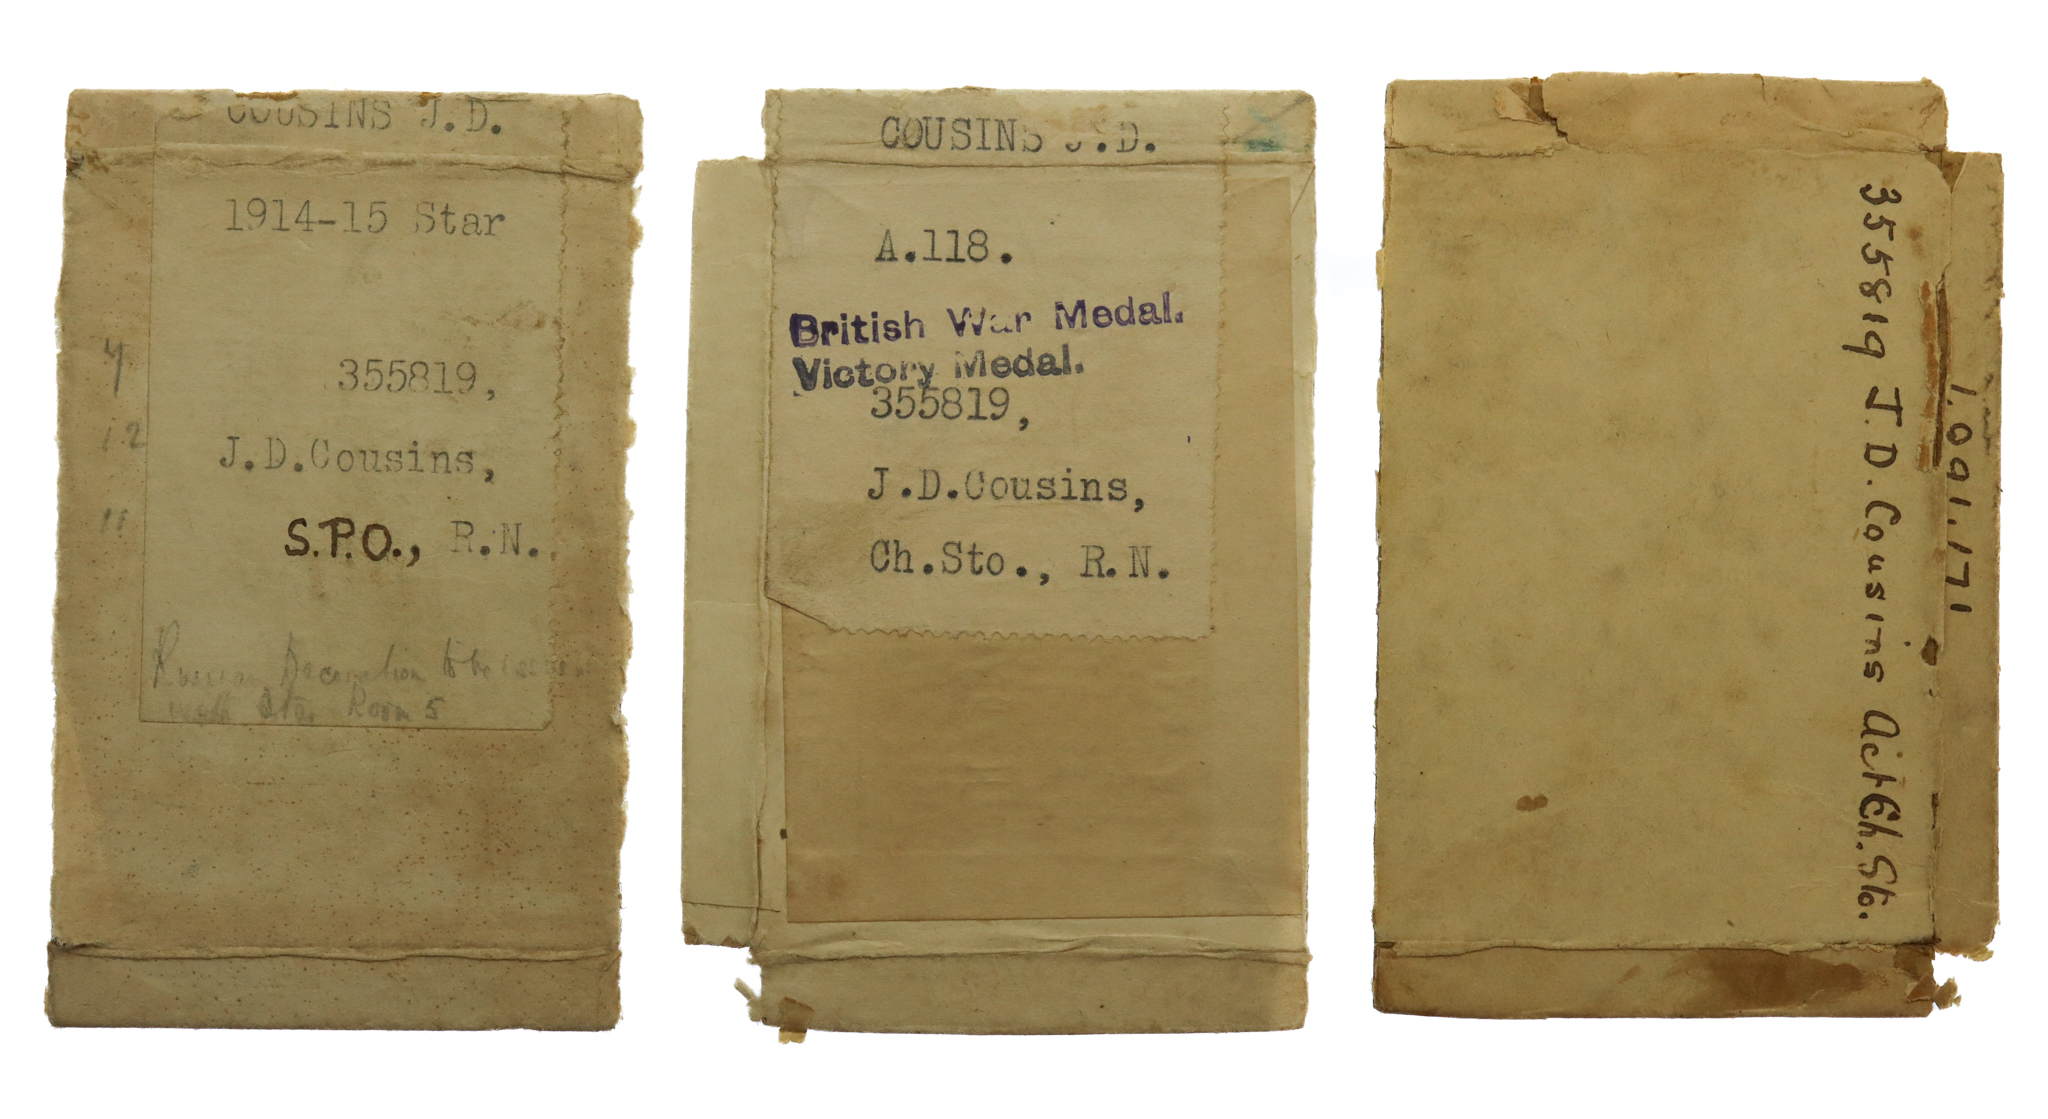 COUSINS J.D.
1914-15 Star
355819,
J.D.Cousins,
S.P.O., R.N.
Russian Decoration to be
Room 5
4
12
11
COUSINS J.D.
A.118.
British War Medal.
Victory Medal.
355819,
J.D.Cousins,
Ch.Sto., R.N.
355819 J.D. Cousins Act Ch. Sto.
1.091.171